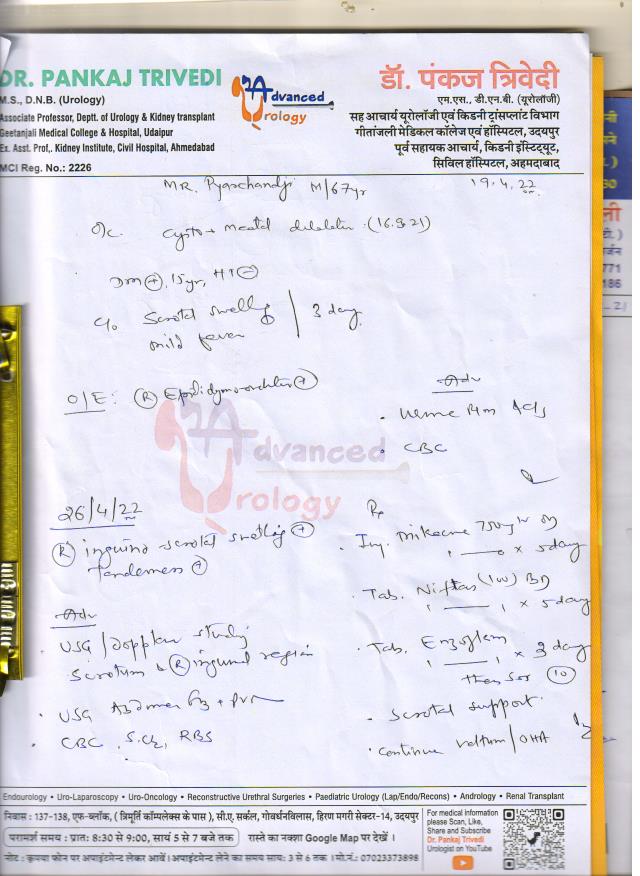 DR. PANKAJ TRIVEDI
M.S., D.N.B. (Urology)
Associate Professor, Deptt. of Urology & Kidney transplant
Geetanjali Medical College & Hospital, Udaipur
Ex. Asst. Prof,. Kidney Institute, Civil Hospital, Ahmedabad
MCI Reg. No.: 2226
Advanced
Urology
डॉ. पंकज त्रिवेदी
एम.एस., डी.एन.बी. (यूरोलॉजी)
सह आचार्य यूरोलॉजी एवं किडनी ट्रांसप्लांट विभाग
गीतांजली मेडिकल कॉलेज एवं हॉस्पिटल, उदयपुर
पूर्व सहायक आचार्य, किडनी इंस्टिट्यूट,
सिविल हॉस्पिटल, अहमदाबाद
MR. Pyarchandji M/67yr
19.4.22
O/c. Cysto + meatal dilatation (16.9.21)
DM (+), 15yr, HT (-)
c/o Scrotal swelling
mild fever
3 day
O/E: (R) Epididymo-orchitis (+)
Adv
Urine Rm
CBC
Advanced
Urology
26/4/22
(R) inguino scrotal swelling (+)
Tenderness (+)
Adv
USG/Doppler study
Scrotum & (R) inguinal region
USG Abdomen + PVR
CBC, S.Cr, RBS
Rx
Inj. 750mg OD
x 5 day
Tab. Niftas (100) BD
x 5 day
Tab. Enzoflam
x 3 day
then SOS (10)
Scrotal support.
continue /OHA
Endourology • Uro-Laparoscopy • Uro-Oncology • Reconstructive Urethral Surgeries • Paediatric Urology (Lap/Endo/Recons) • Andrology • Renal Transplant
निवास : 137-138, एफ-ब्लॉक, ( त्रिमूर्ति कॉम्पलेक्स के पास ), सी.ए. सर्कल, गोवर्धनविलास, हिरण मगरी सेक्टर-14, उदयपुर
परामर्श समय : प्रातः 8:30 से 9:00, सायं 5 से 7 बजे तक रास्ते का नक्शा Google Map पर देखें ।
नोट : कृपया फोन पर अपाइंटमेन्ट लेकर आवें । अपाइंटमेन्ट लेने का समय सायं: 3 से 6 तक । मो.नं.: 07023373898
For medical information
please Scan, Like,
Share and Subscribe
Dr. Pankaj Trivedi
Urologist on YouTube